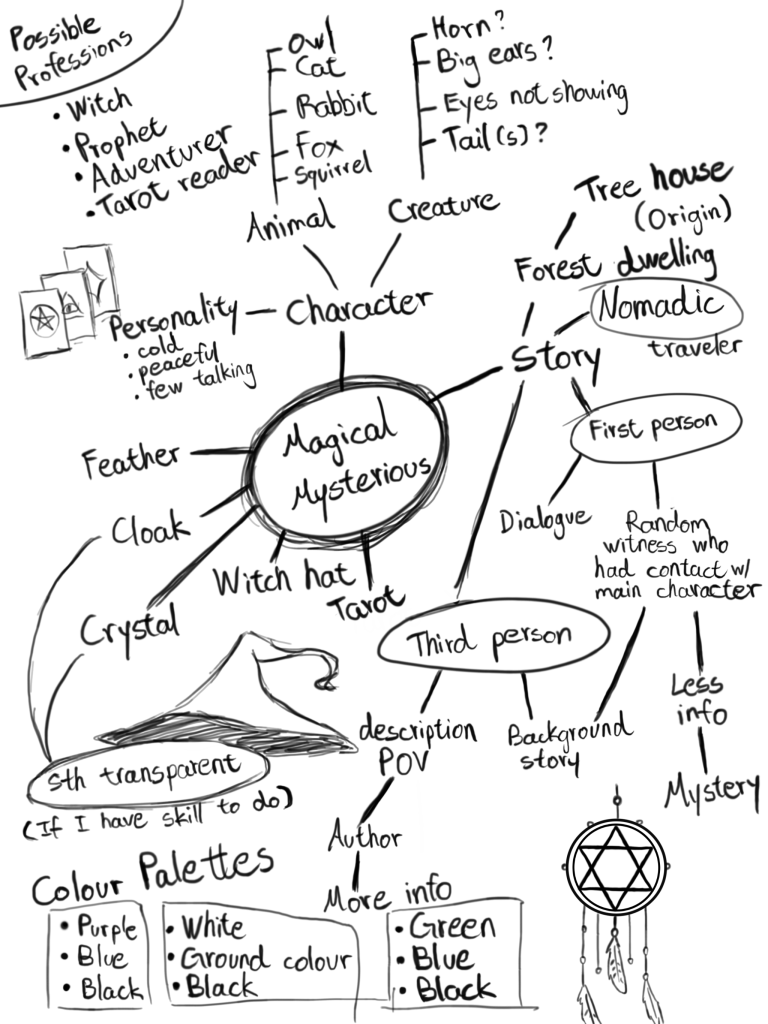 Possible
Professions
• Witch
• Prophet
• Adventurer
• Tarot reader
Owl
Cat
Rabbit
Fox
Squirrel
Animal
Horn?
Big ears?
Eyes not showing
Tail(s)?
Creature
Character
Personality
• cold
• peaceful
• few talking
Tree house
(Origin)
Forest dwelling
Nomadic
traveler
Story
First person
Dialogue
Random
witness who
had contact w/
main character
Less
info
Mystery
Magical
Mysterious
Feather
Cloak
Crystal
Witch hat
Tarot
Third person
description
POV
Background
story
Author
More info
Sth transparent
(If I have skill to do)
Colour Palettes
• Purple
• Blue
• Black
• White
• Ground colour
• Black
• Green
• Blue
• Black